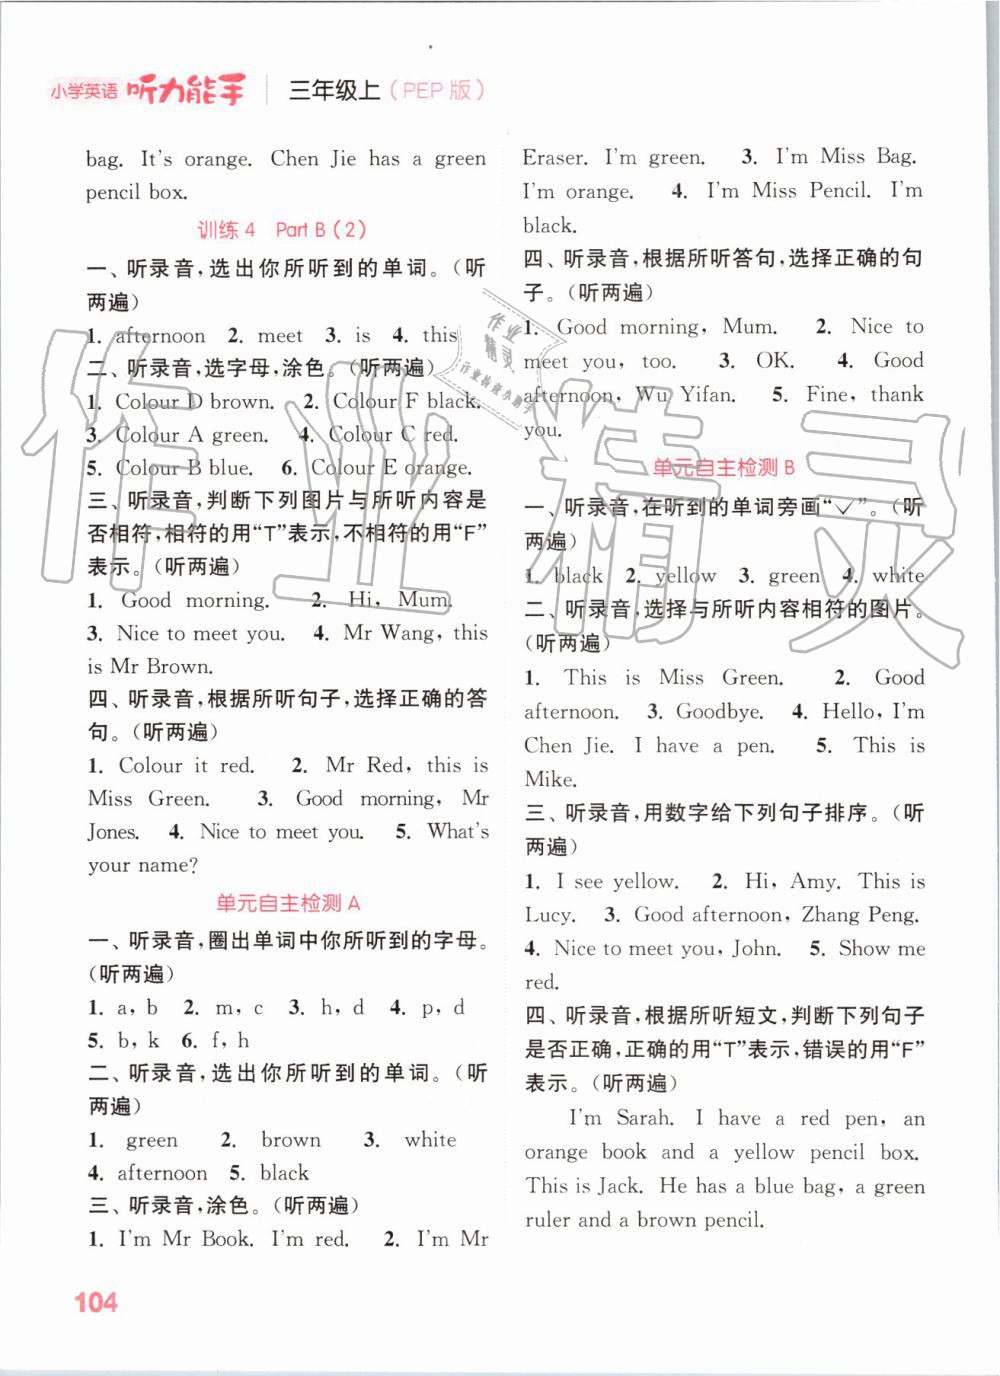 小学英语 听力能手 三年级上（PEP版）
bag. It's orange. Chen Jie has a green
pencil box.
训练4 Part B（2）
一、听录音，选出你所听到的单词。（听
两遍）
1. afternoon 2. meet 3. is 4. this
二、听录音，选字母，涂色。（听两遍）
1. Colour D brown. 2. Colour F black.
3. Colour A green. 4. Colour C red.
5. Colour B blue. 6. Colour E orange.
三、听录音，判断下列图片与所听内容是
否相符，相符的用“T”表示，不相符的用“F”
表示。（听两遍）
1. Good morning. 2. Hi, Mum.
3. Nice to meet you. 4. Mr Wang, this
is Mr Brown.
四、听录音，根据所听句子，选择正确的答
句。（听两遍）
1. Colour it red. 2. Mr Red, this is
Miss Green. 3. Good morning, Mr
Jones. 4. Nice to meet you. 5. What's
your name?
单元自主检测 A
一、听录音，圈出单词中你所听到的字母。
（听两遍）
1. a, b 2. m, c 3. h, d 4. p, d
5. b, k 6. f, h
二、听录音，选出你所听到的单词。（听
两遍）
1. green 2. brown 3. white
4. afternoon 5. black
三、听录音，涂色。（听两遍）
1. I'm Mr Book. I'm red. 2. I'm Mr
Eraser. I'm green. 3. I'm Miss Bag.
I'm orange. 4. I'm Miss Pencil. I'm
black.
四、听录音，根据所听答句，选择正确的句
子。（听两遍）
1. Good morning, Mum. 2. Nice to
meet you, too. 3. OK. 4. Good
afternoon, Wu Yifan. 5. Fine, thank
you.
单元自主检测 B
一、听录音，在听到的单词旁画“✓”。（听
两遍）
1. black 2. yellow 3. green 4. white
二、听录音，选择与所听内容相符的图片。
（听两遍）
1. This is Miss Green. 2. Good
afternoon. 3. Goodbye. 4. Hello, I'm
Chen Jie. I have a pen. 5. This is
Mike.
三、听录音，用数字给下列句子排序。（听
两遍）
1. I see yellow. 2. Hi, Amy. This is
Lucy. 3. Good afternoon, Zhang Peng.
4. Nice to meet you, John. 5. Show me
red.
四、听录音，根据所听短文，判断下列句子
是否正确，正确的用“T”表示，错误的用“F”
表示。（听两遍）
I'm Sarah. I have a red pen, an
orange book and a yellow pencil box.
This is Jack. He has a blue bag, a green
ruler and a brown pencil.
104
作业精灵
作业
精灵
作业检查小助手